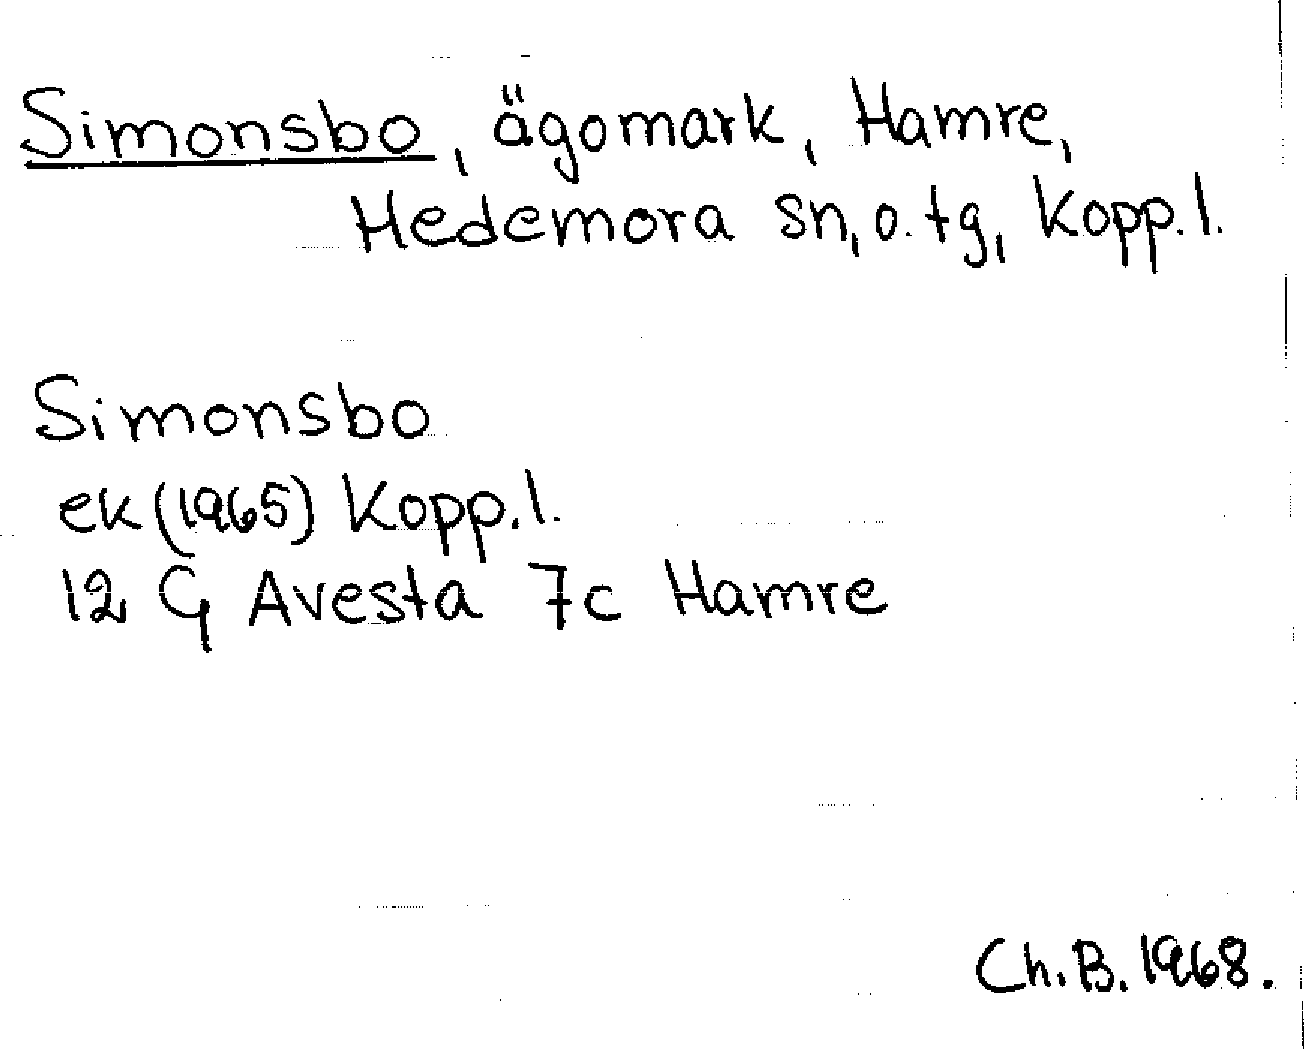 Simonsbo, ägomark, Hamre,
Hedemora sn, o. tg, Kopp. l.
Simonsbo
ek (1965) Kopp. l.
12 G Avesta 7c Hamre
Ch. B. 1968.